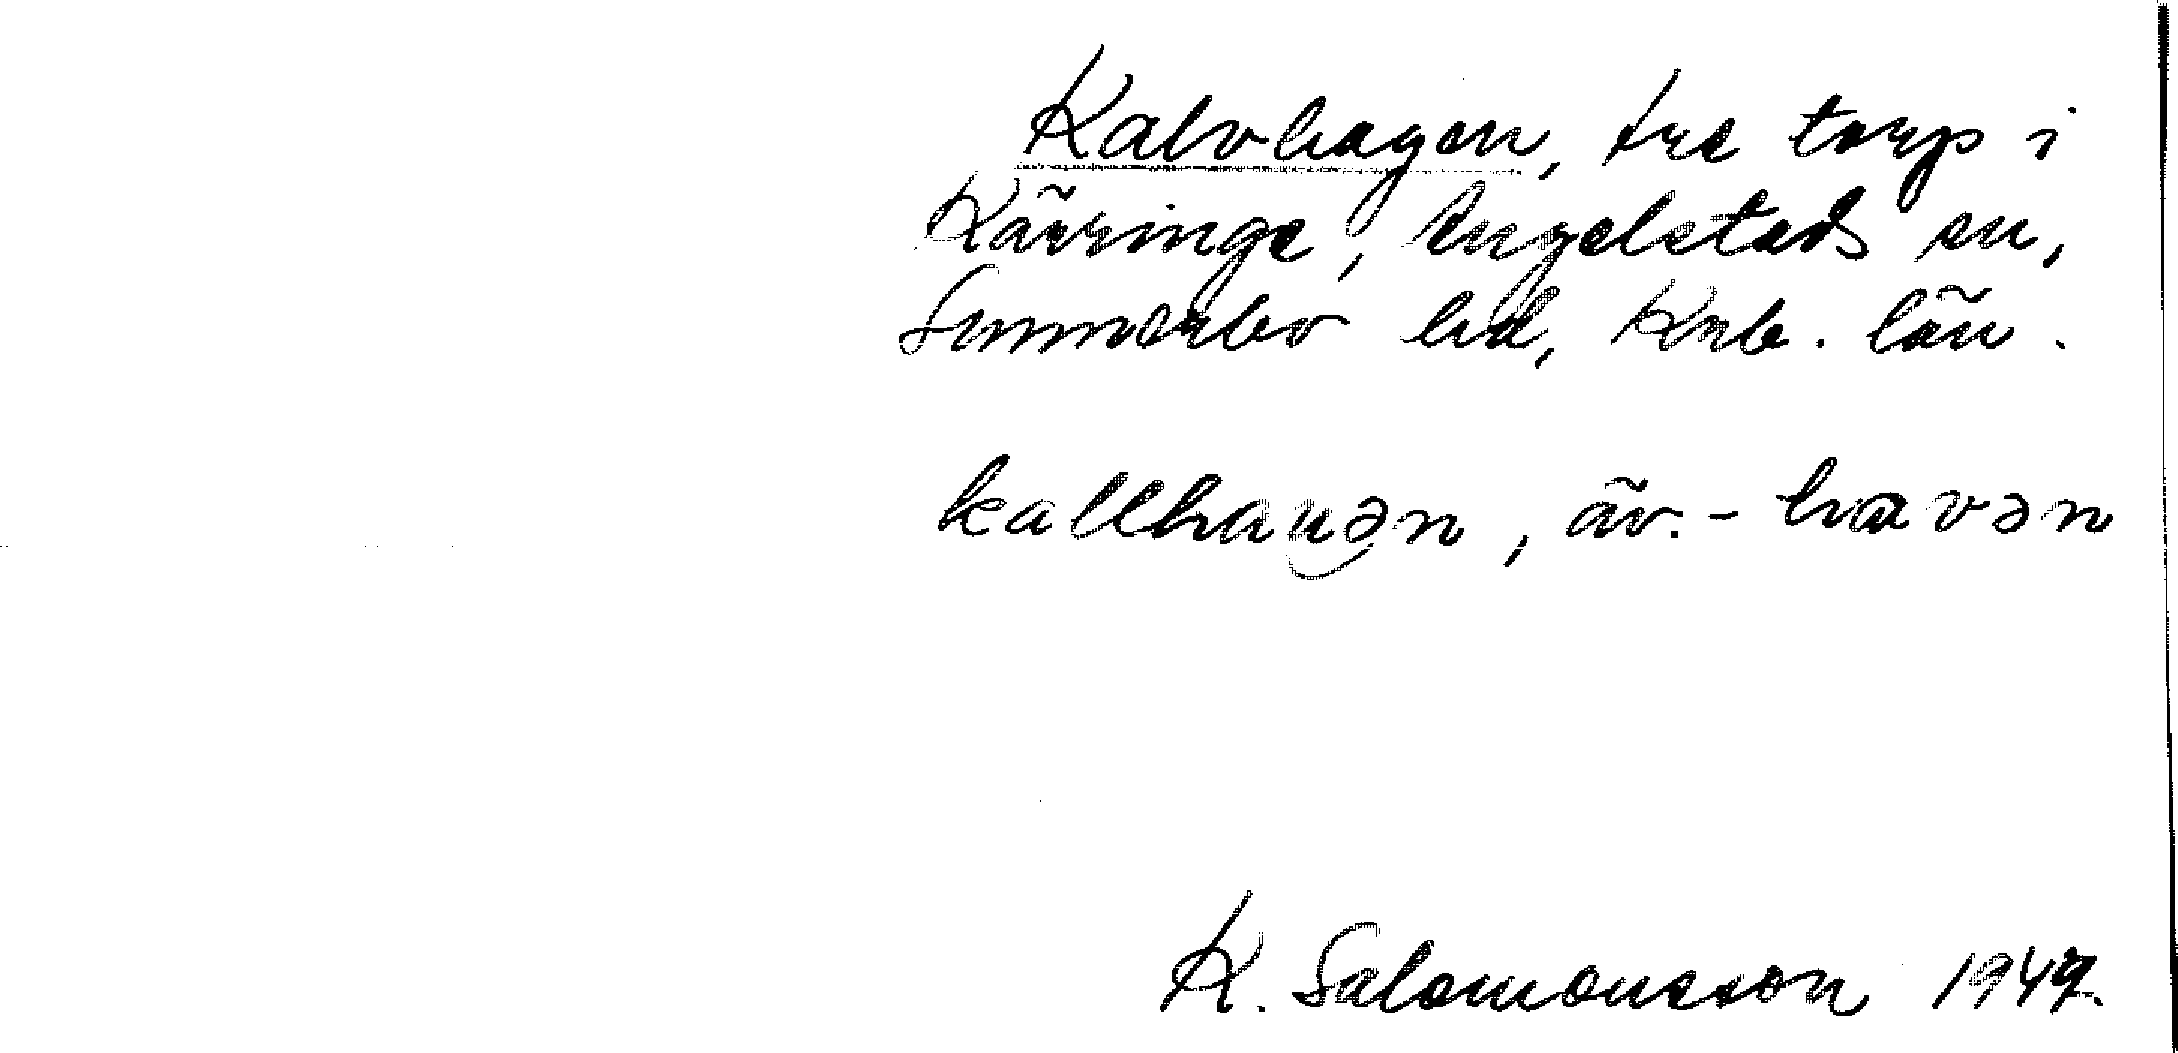 Kalvhagen, tre torp i
Kärringe, Angelstads sn,
Sunnerbo hd, Krb. län.
kallhauən, äv. - havən
K. Salomonsson 1947.